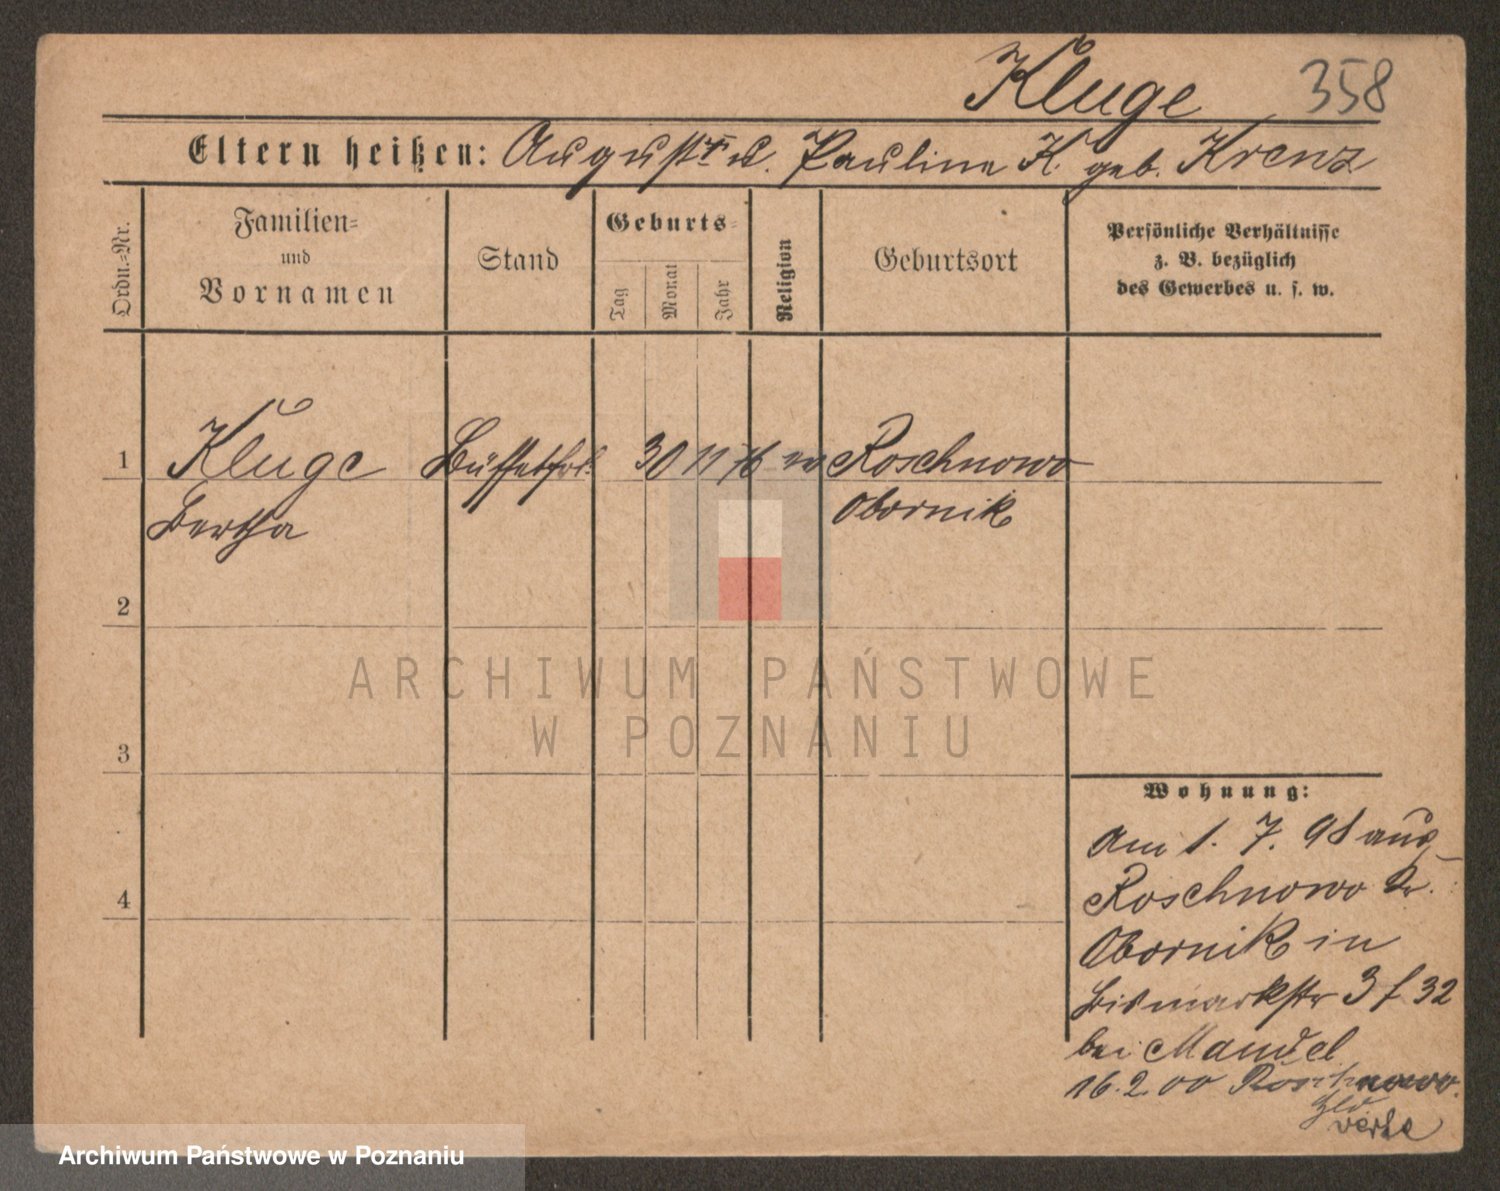 Kluge 358
Eltern heißen: August † u. Pauline K. geb. Krenz
Ordn.=Nr.
Familien=
und
Vornamen
Stand
Geburts=
Tag
Monat
Jahr
Religion
Geburtsort
Persönliche Verhältnisse
z. B. bezüglich
des Gewerbes u. s. w.
1 Kluge Büffetfrl. 30 11 76 ev Roschnowo
Bertha Obornik
2
3
4
Wohnung:
Am 1. 7. 98 aus
Roschnowo Kr.
Obornik in
Bismarkstr 3 f 32
bei Mandel
16.2.00 Roschnowo.
ARCHIWUM PAŃSTWOWE
W POZNANIU
Archiwum Państwowe w Poznaniu